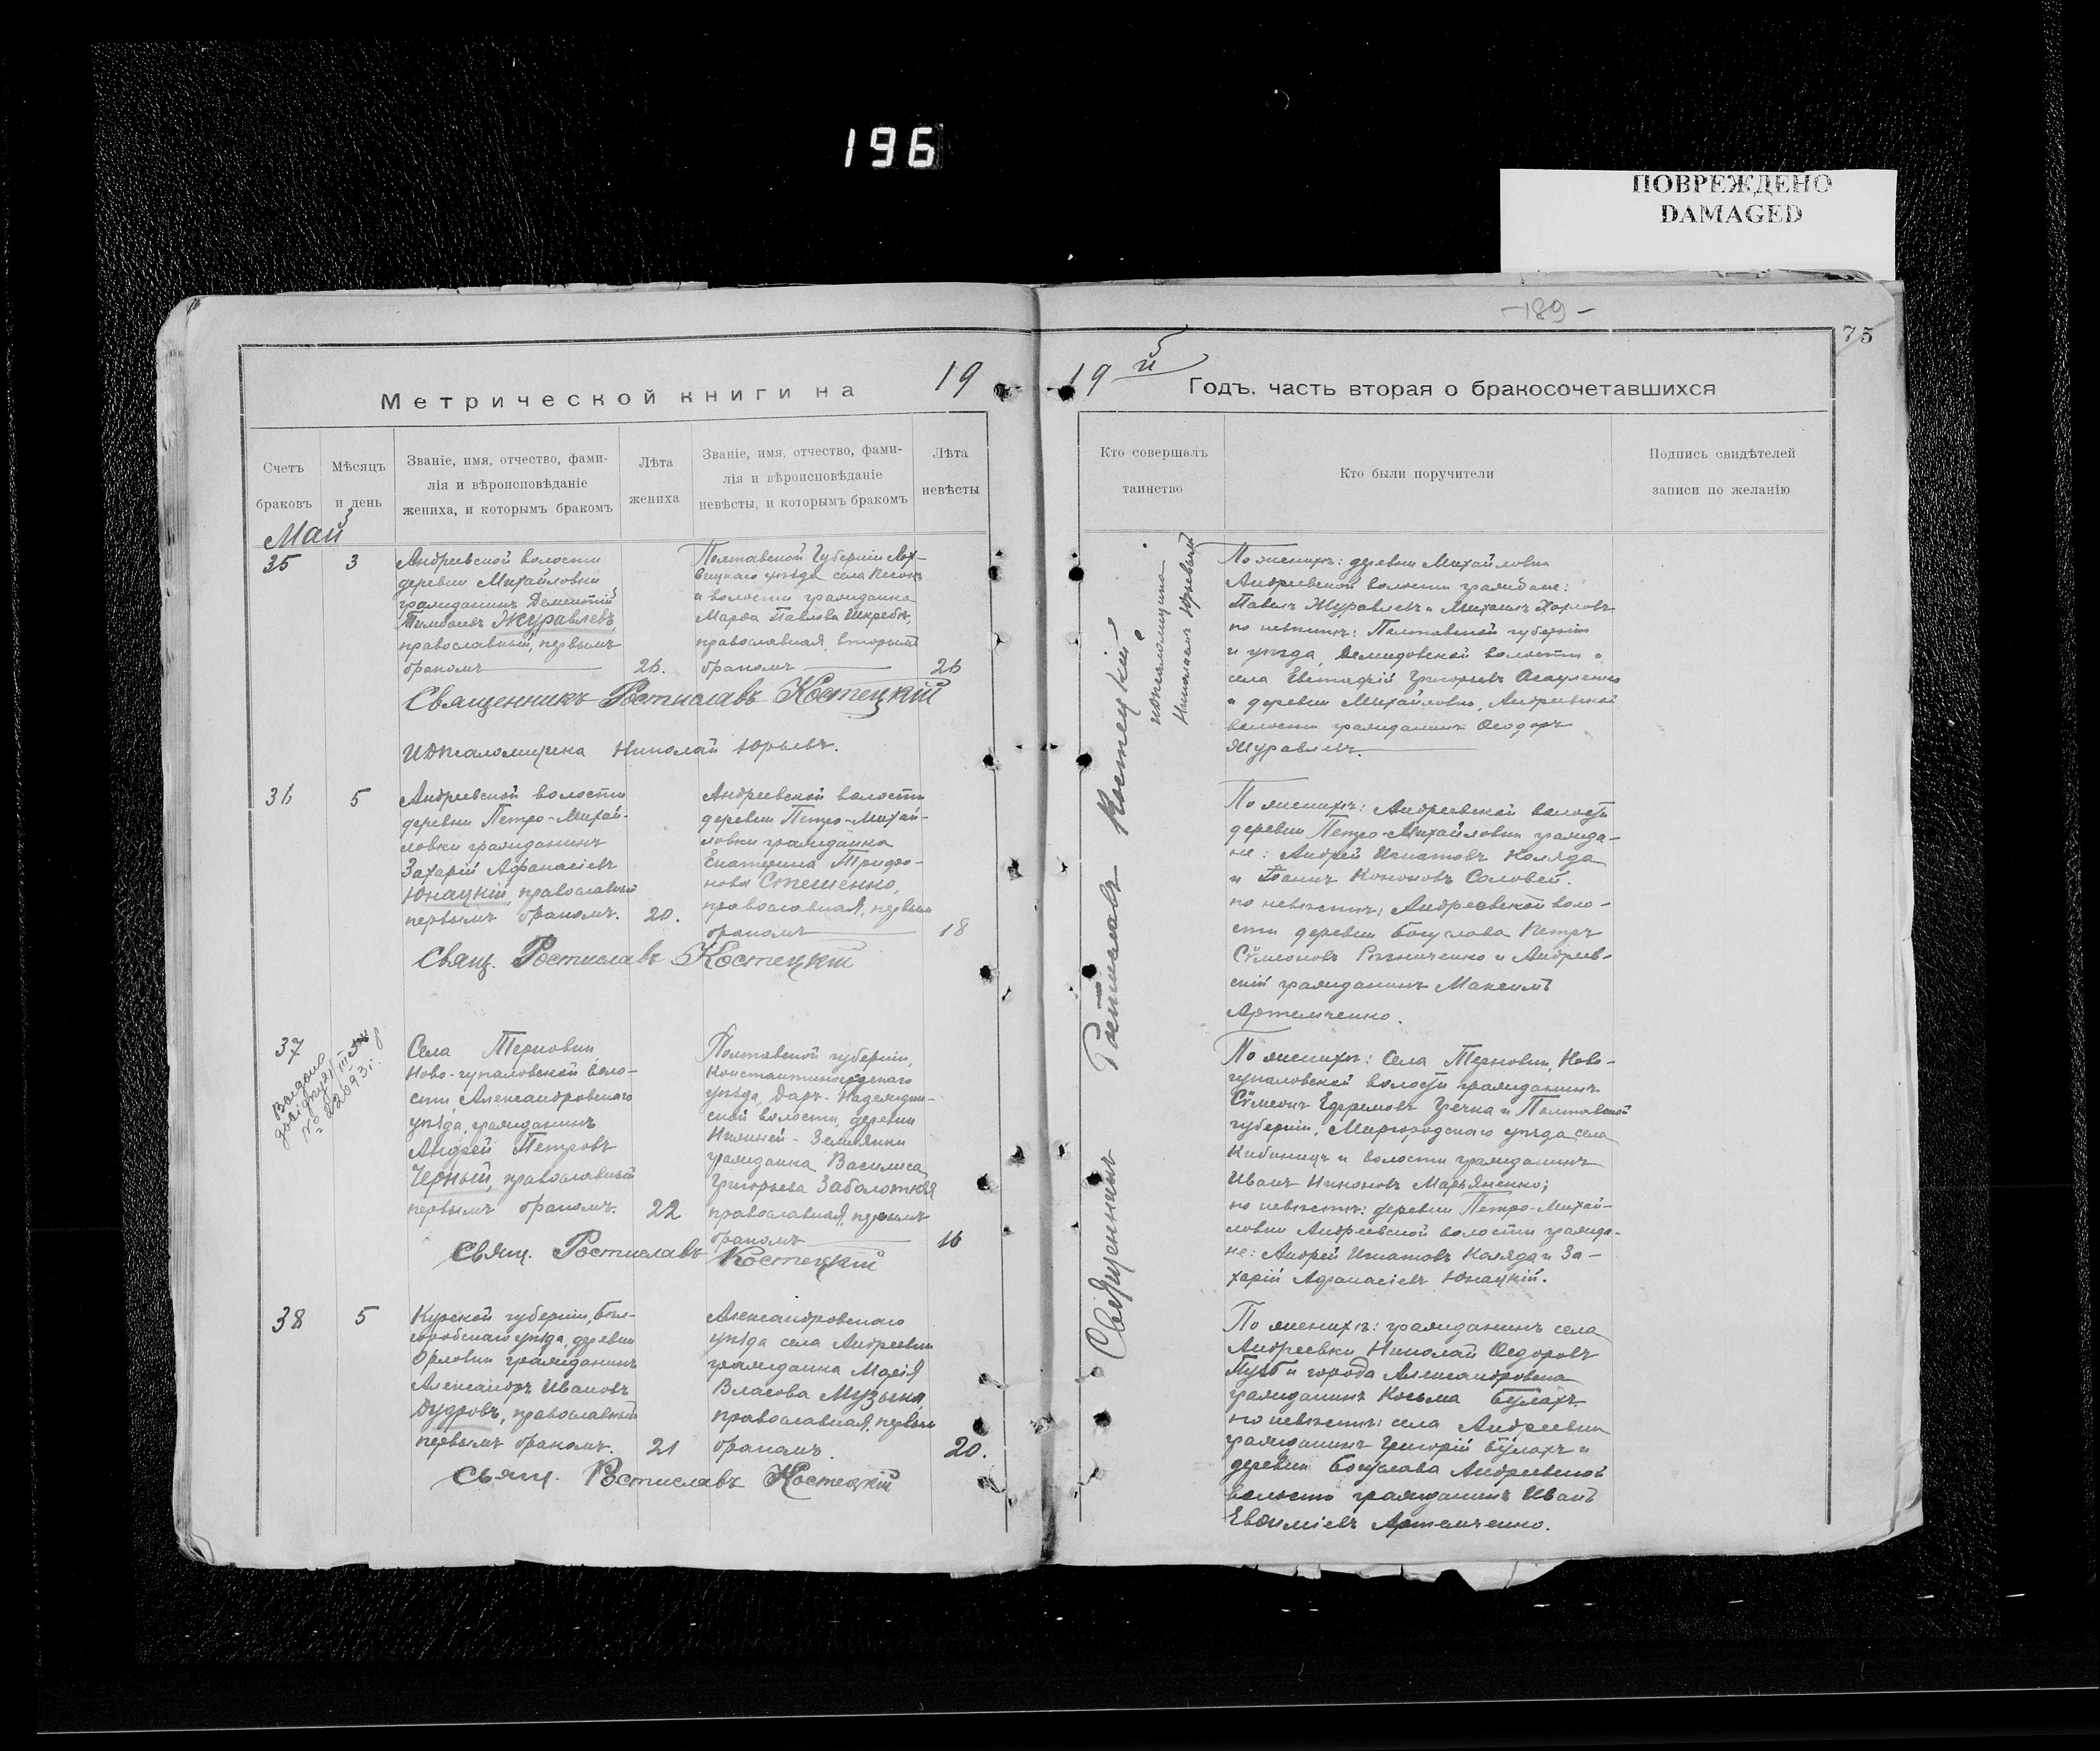 196
ПОВРЕЖДЕНО
DAMAGED
-189-
75
Метрической книги на 19
19 й Годъ. часть вторая о бракосочетавшихся
Счетъ браковъ
Мѣсяцъ и день
Званіе, имя, отчество, фами-
лія и вѣроисповѣданіе
жениха, и которымъ бракомъ
Лѣта жениха
Званіе, имя, отчество, фами-
лія и вѣроисповѣданіе
невѣсты, и которымъ бракомъ
Лѣта невѣсты
Кто совершалъ таинство
Кто были поручители
Подпись свидѣтелей
записи по желанію
Май
35
3
Андреевской волости
деревни Михайловки
гражданинъ Дементій
Журавлевъ,
православный, первымъ
бракомъ
26.
Полтавской Губерніи Лох-
вицкаго уѣзда села
и волости гражданка
Марѳа Павлова
православная, вторымъ
бракомъ
26
Священникъ Ростиславъ Костецкій
Николай Юрьевъ.
36
5
Андреевской волости
деревни Петро-Михай-
ловки гражданинъ
Захарій Аѳанасіевъ
Юнацкій, православный
первымъ бракомъ.
20.
Андреевской волости
деревни Петро-Михай-
ловки гражданка
Екатерина Трифо-
нова Стешенко,
православная, первым
бракомъ
18
Свящ. Ростиславъ Костецкій
37
Села Терновки
Ново-гупаловской воло-
сти Александровскаго
уѣзда, гражданинъ
Андрей Петровъ
Черный, православный
первымъ бракомъ.
22
Полтавской губерніи,
Константиноградскаго
уѣзда, Даръ-Надеждин-
ской волости, деревни
гражданка Василиса
Григорьева Заболотняя
православная, первымъ
бракомъ
16
Свящ. Ростиславъ Костецкій
38
5
Курской губерніи, Бѣл-
уѣзда, деревни
Орловки гражданинъ
Александръ Ивановъ
Дудровъ, православный
первымъ бракомъ.
21
Александровскаго
уѣзда села Андреевки
гражданка Марія
Власова Музыка,
православная, первым
бракомъ.
20.
Свящ. Ростиславъ Костецкій
Священникъ Ростиславъ Костецкій
По женихѣ: деревни Михайловки
Андреевской волости граждане:
Павелъ Журавлевъ и Михаилъ
по невѣстѣ: Полтавской губерніи
и уѣзда, Демидовской волости и
села Евстафій Григорьевъ
и деревни Михайловки, Андреевской
волости гражданинъ Ѳеодоръ
Журавлевъ.
По женихѣ: Андреевской волости
деревни Петро-Михайловки гражда-
не: Андрей Игнатовъ Коляда
и Кононовъ Соловей.
по невѣстѣ: Андреевской воло-
сти деревни Богуслава Петръ
Сѵмеоновъ Рѣзниченко и Андреев-
скій гражданинъ Максимъ
Артемченко.
По женихѣ: Села Терновки, Ново-
гупаловской волости гражданинъ
Сѵмеонъ Ефремовъ Гречка и Полтавской
губерніи, Миргородскаго уѣзда села
Кибинцъ и волости гражданинъ
Иванъ Никоновъ Марьяненко;
по невѣстѣ: деревни Петро-Михай-
ловки Андреевской волости гражда-
не: Андрей Игнатовъ Коляда и За-
харій Аѳанасіевъ Юнацкій.
По женихѣ: гражданинъ села
Андреевки Николай Ѳедоровъ
и города Александровска
гражданинъ Косьма Булахъ.
по невѣстѣ: села Андреевки
гражданинъ Григорій Булахъ и
деревни Богуслава Андреевской
волости гражданинъ Иванъ
Евѳиміевъ Артемченко.